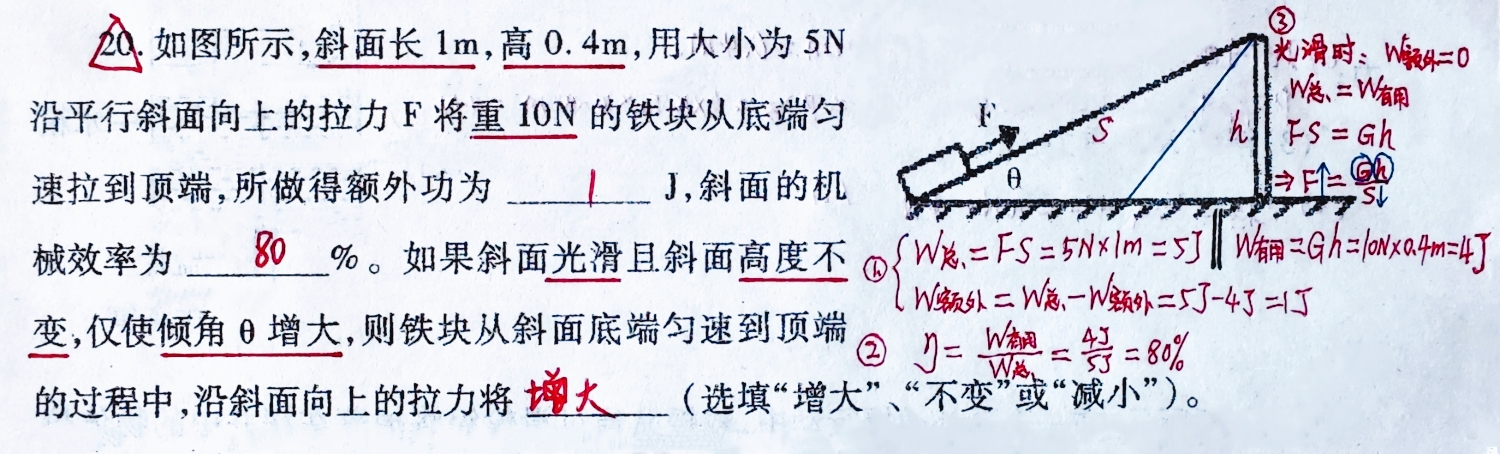 20. 如图所示,斜面长 1m,高 0.4m,用大小为 5N
沿平行斜面向上的拉力 F 将重 10N 的铁块从底端匀
速拉到顶端,所做得额外功为 1 J,斜面的机
械效率为 80 %。如果斜面光滑且斜面高度不
变,仅使倾角 θ 增大,则铁块从斜面底端匀速到顶端
的过程中,沿斜面向上的拉力将 增大 (选填“增大”、“不变”或“减小”)。
F
θ
S
h
③
光滑时: W额外=0
W总=W有用
FS=Gh
⇒F↑=Gh/S↓
① W总=FS=5N×1m=5J
W有用=Gh=10N×0.4m=4J
W额外=W总-W额外=5J-4J=1J
② η=W有用/W总=4J/5J=80%